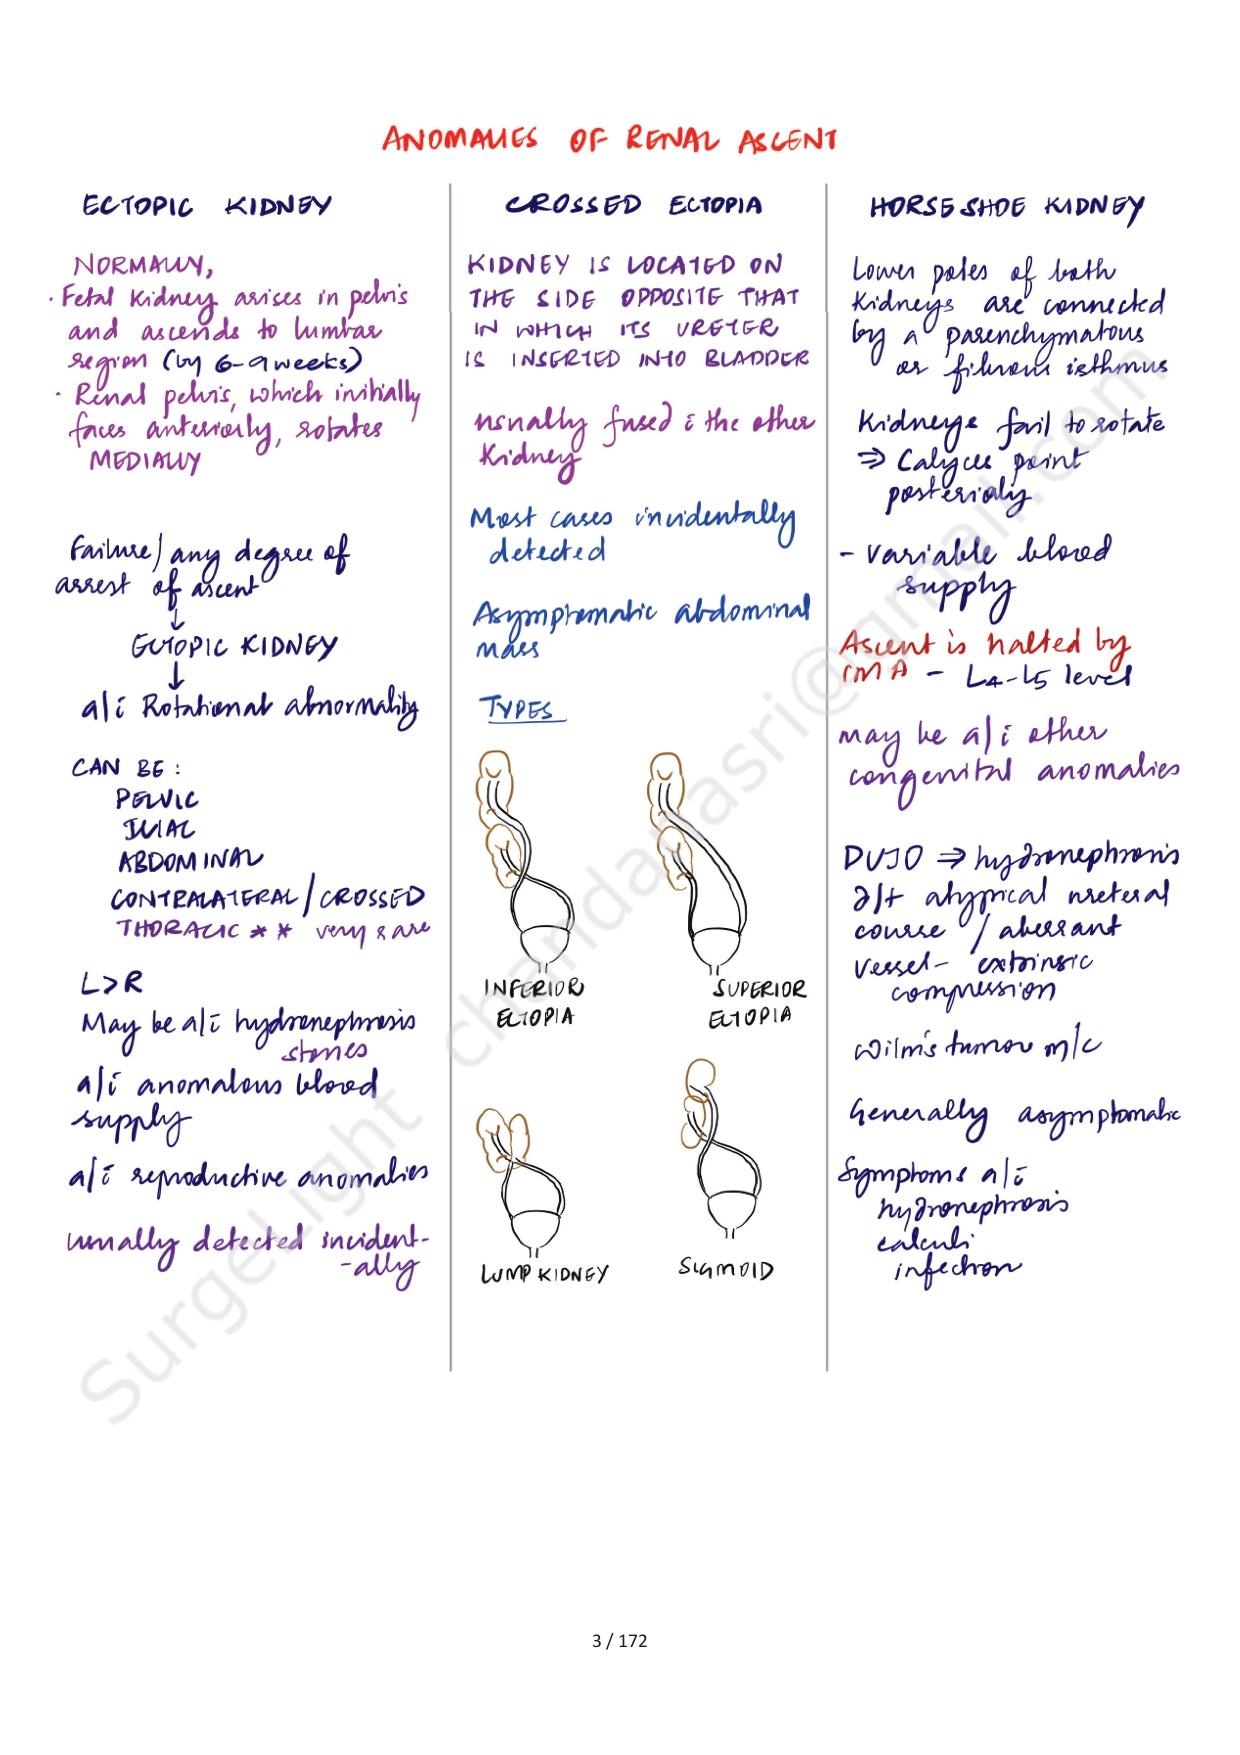 ANOMALIES OF RENAL ASCENT
ECTOPIC KIDNEY
NORMALLY,
· Fetal Kidney arises in pelvis
and ascends to lumbar
region (by 6-9 weeks)
· Renal pelvis, which initially
faces anteriorly, rotates
MEDIALLY
Failure/any degree of
arrest of ascent
↓
ECTOPIC KIDNEY
↓
a/c̄ Rotational abnormality
CAN BE :
PELVIC
ILIAC
ABDOMINAL
CONTRALATERAL/CROSSED
THORACIC * * very rare
L>R
May be a/c̄ hydronephrosis
stones
a/c̄ anomalous blood
supply
a/c̄ reproductive anomalies
usually detected incident-
-ally
CROSSED ECTOPIA
KIDNEY IS LOCATED ON
THE SIDE OPPOSITE THAT
IN WHICH ITS URETER
IS INSERTED INTO BLADDER
usually fused c̄ the other
Kidney
Most cases incidentally
detected
Asymptomatic abdominal
mass
TYPES
INFERIOR
ECTOPIA
SUPERIOR
ECTOPIA
LUMP KIDNEY
SIGMOID
HORSE SHOE KIDNEY
Lower poles of both
Kidneys are connected
by a parenchymatous
or fibrous isthmus
Kidneys fail to rotate
⇒ Calyces point
posteriorly
- variable blood
supply
Ascent is halted by
IMA - L4-L5 level
may be a/c̄ other
congenital anomalies
PUJO ⇒ hydronephrosis
d/t atypical ureteral
course / aberrant
vessel - extrinsic
compression
Wilm's tumor m/c
Generally asymptomatic
Symptoms a/c̄
hydronephrosis
calculi
infection
SurgeLight chandanasri@gmail.com
3 / 172